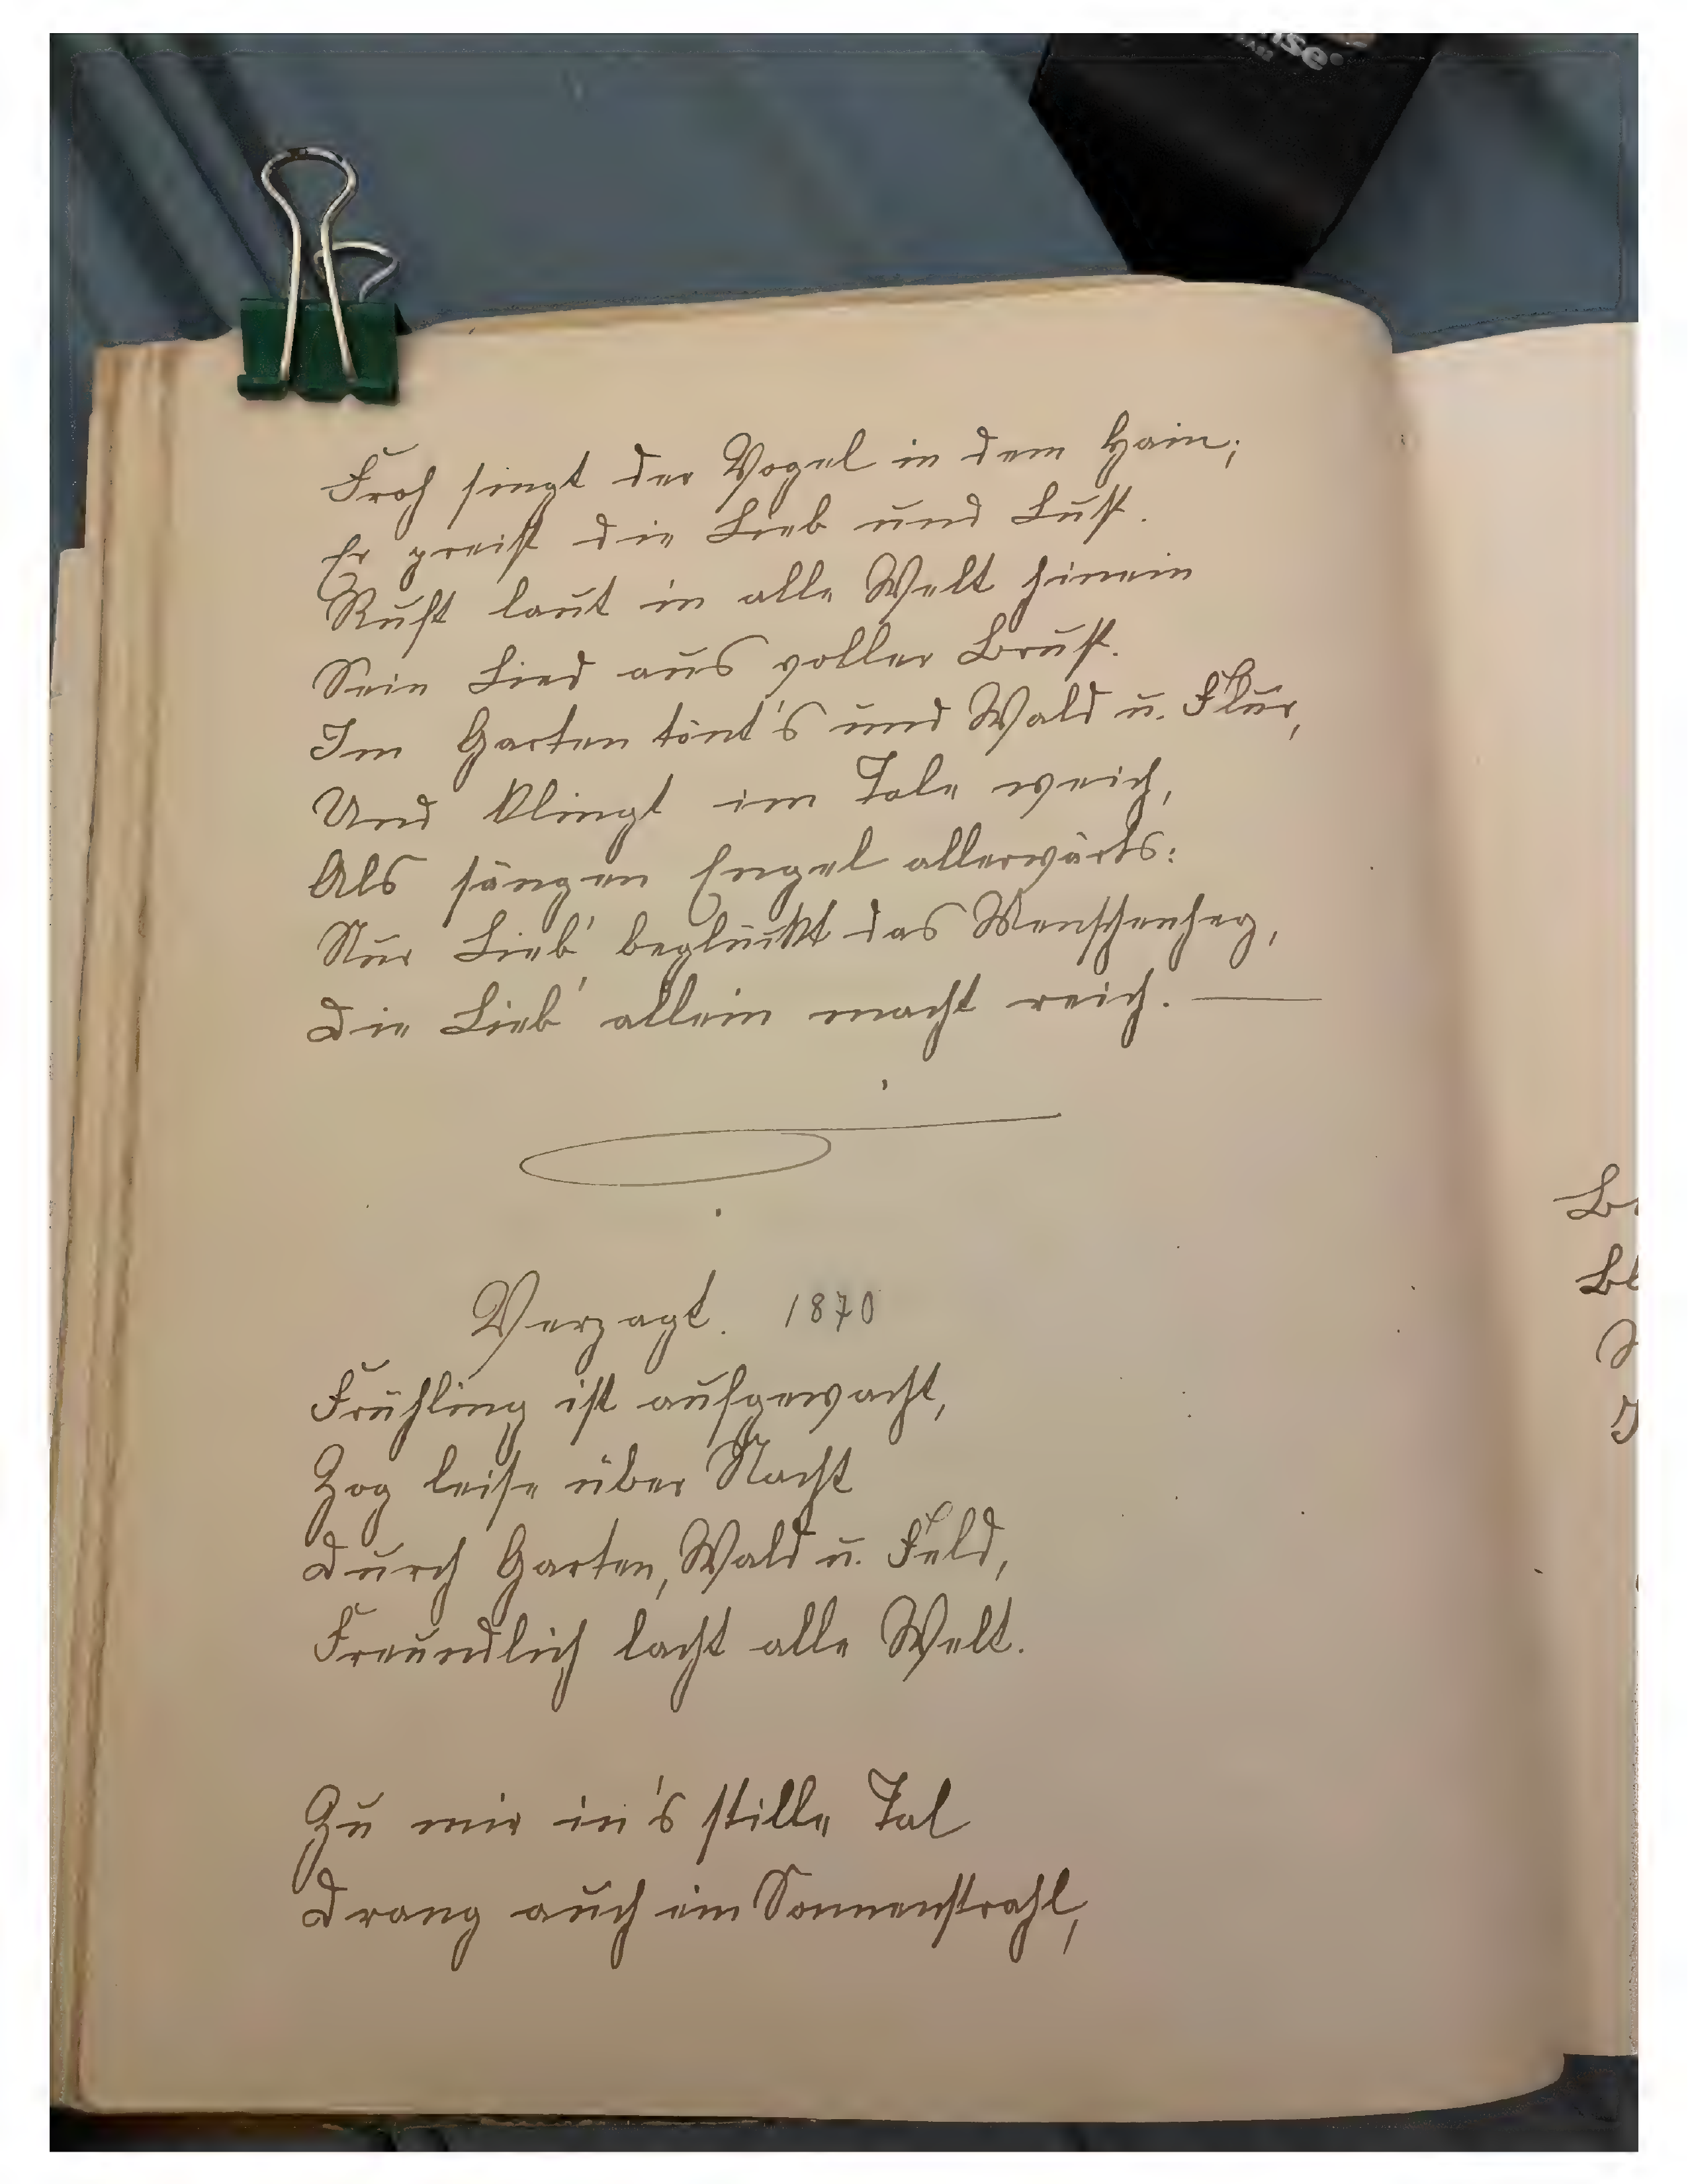 Froh singt der Vogel in dem Hain;
Er preist die Lieb und Lust.
Ruft laut in alle Welt hinein
Sein Lied aus voller Brust.
Im Garten tönt's und Wald u. Flur,
Und klingt im Tale weich,
Als sängen Engel allerwärts:
Nur Lieb' beglückt das Menschenherz,
Die Lieb' allein macht reich. —
Verzagt. 1870
Frühling ist aufgewacht,
Zog leise über Nacht
Durch Garten, Wald u. Feld,
Freundlich lacht alle Welt.
Zu mir in's stille Tal
Drang auch ein Sonnenstrahl,